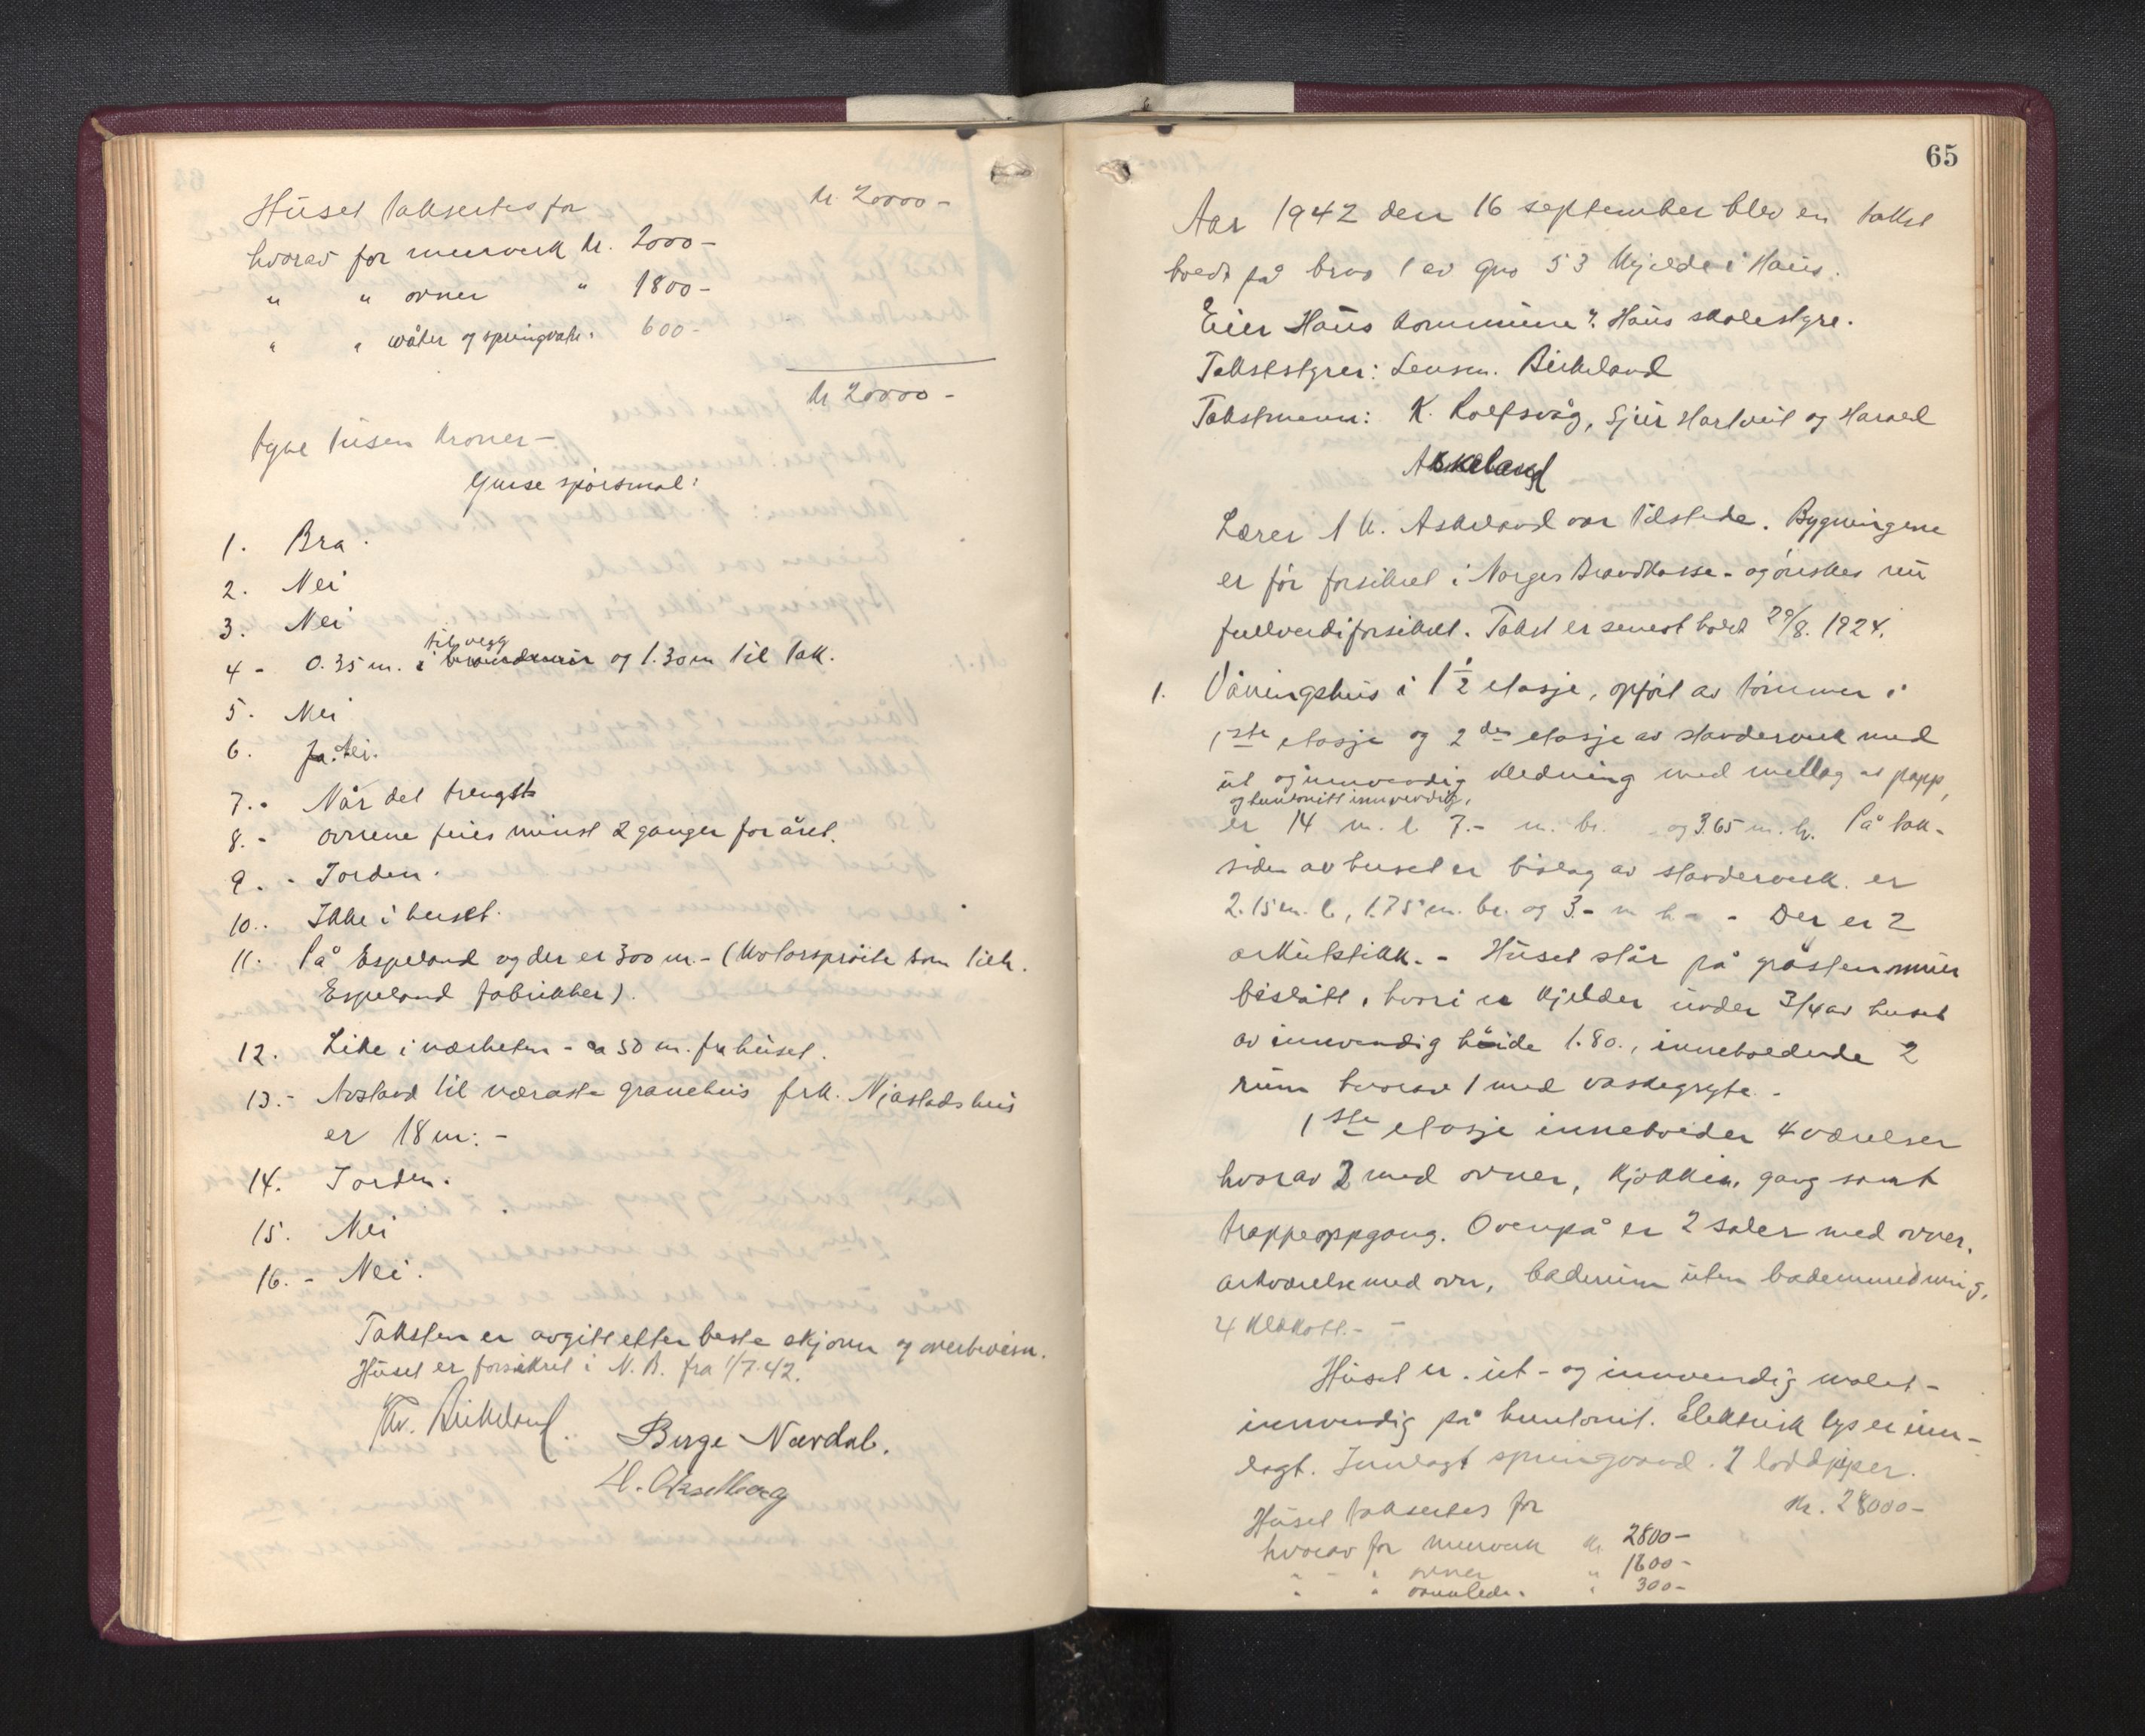 Huset takseres for kr. 20000-
hvorav for murverk kr. 2000-
" " ovner " 1800-
" " og springvatn. 600-
kr 20000-
tyve tusen kroner-
Ymse spørsmål:
1. Bra.
2. Nei
3. Nei
4 - 0.35 m. til vegg og 1.30 m til tak.
5. Nei
6. Ja. Nei.
7. - Når det trengst
8. - ovnene feies minst 2 ganger for året.
9. - Jorden.
10. Ikke i huset.
11. På Espeland og der er 300 m. - (Motorsprøite som tilh.
Espeland fabrikker).
12. Like i nærheten - ca 50 m. fra huset.
13. - Avstand til næraste granehus frk. Njåstads hus
er 18 m. -
14. Jorden.
15. Nei
16. - Nei.
Taksten er avgitt etter beste skjønn og overbevisn.
Huset er forsikret i N. B. fra 1/7.42.
Birkeland.
Birge Nævdal.
65
Aar 1942 den 16 september blev en takst
holdt på brno 1 av gno 53 Mjelde i Haus.
Eier Haus kommune v. Haus skolestyre.
Takststyrer: Lensm. Birkeland
Takstmenn: K. Rolfsvåg, Sjur Hartveit og Harald
Askeland
Lærer A K. Askeland var tilstede. Bygningene
er før forsikret i Norges Brandkasse - og ønskes nu
fullverdiforsikret. Takst er senest holdt 29/8. 1924.
1. Våningshus i 1 1/2 etasje, opført av tømmer i
1ste etasje og 2den etasje av standerverk med
ut og innvendig kledning med mellag av papp,
og huntonitt innvendig,
er 14 m. l. 7.- m. br. og 3.65 m. h. På bak-
siden av huset er bislag av standerverk. er
2.15 m. l, 1.75 m. br. og 3.- m h. - - Der er 2
arkutstikk. - Huset står på gråstensmur
beslått, hvori er kjelder under 3/4 av huset
av innvendig høide 1.80., inneholdende 2
rum hvorav 1 med vaskegryte. -
1ste etasje inneholder 4 værelser
hvorav 3 med ovner, kjøkken, gang samt
trappeoppgang. Ovenpå er 2 saler med ovner,
arkværelse med ovn, baderum uten badeinnredning,
4 klekott. -
Huset er ut - og innvendig malet -
innvendig på huntonit. Elektrisk lys er inn-
lagt. Innlagt springvand. 2 loddpiper.
Huset takseres for kr. 28000-
hvorav for murverk kr 2800-
" - " ovner " 1600-
" " " 300-